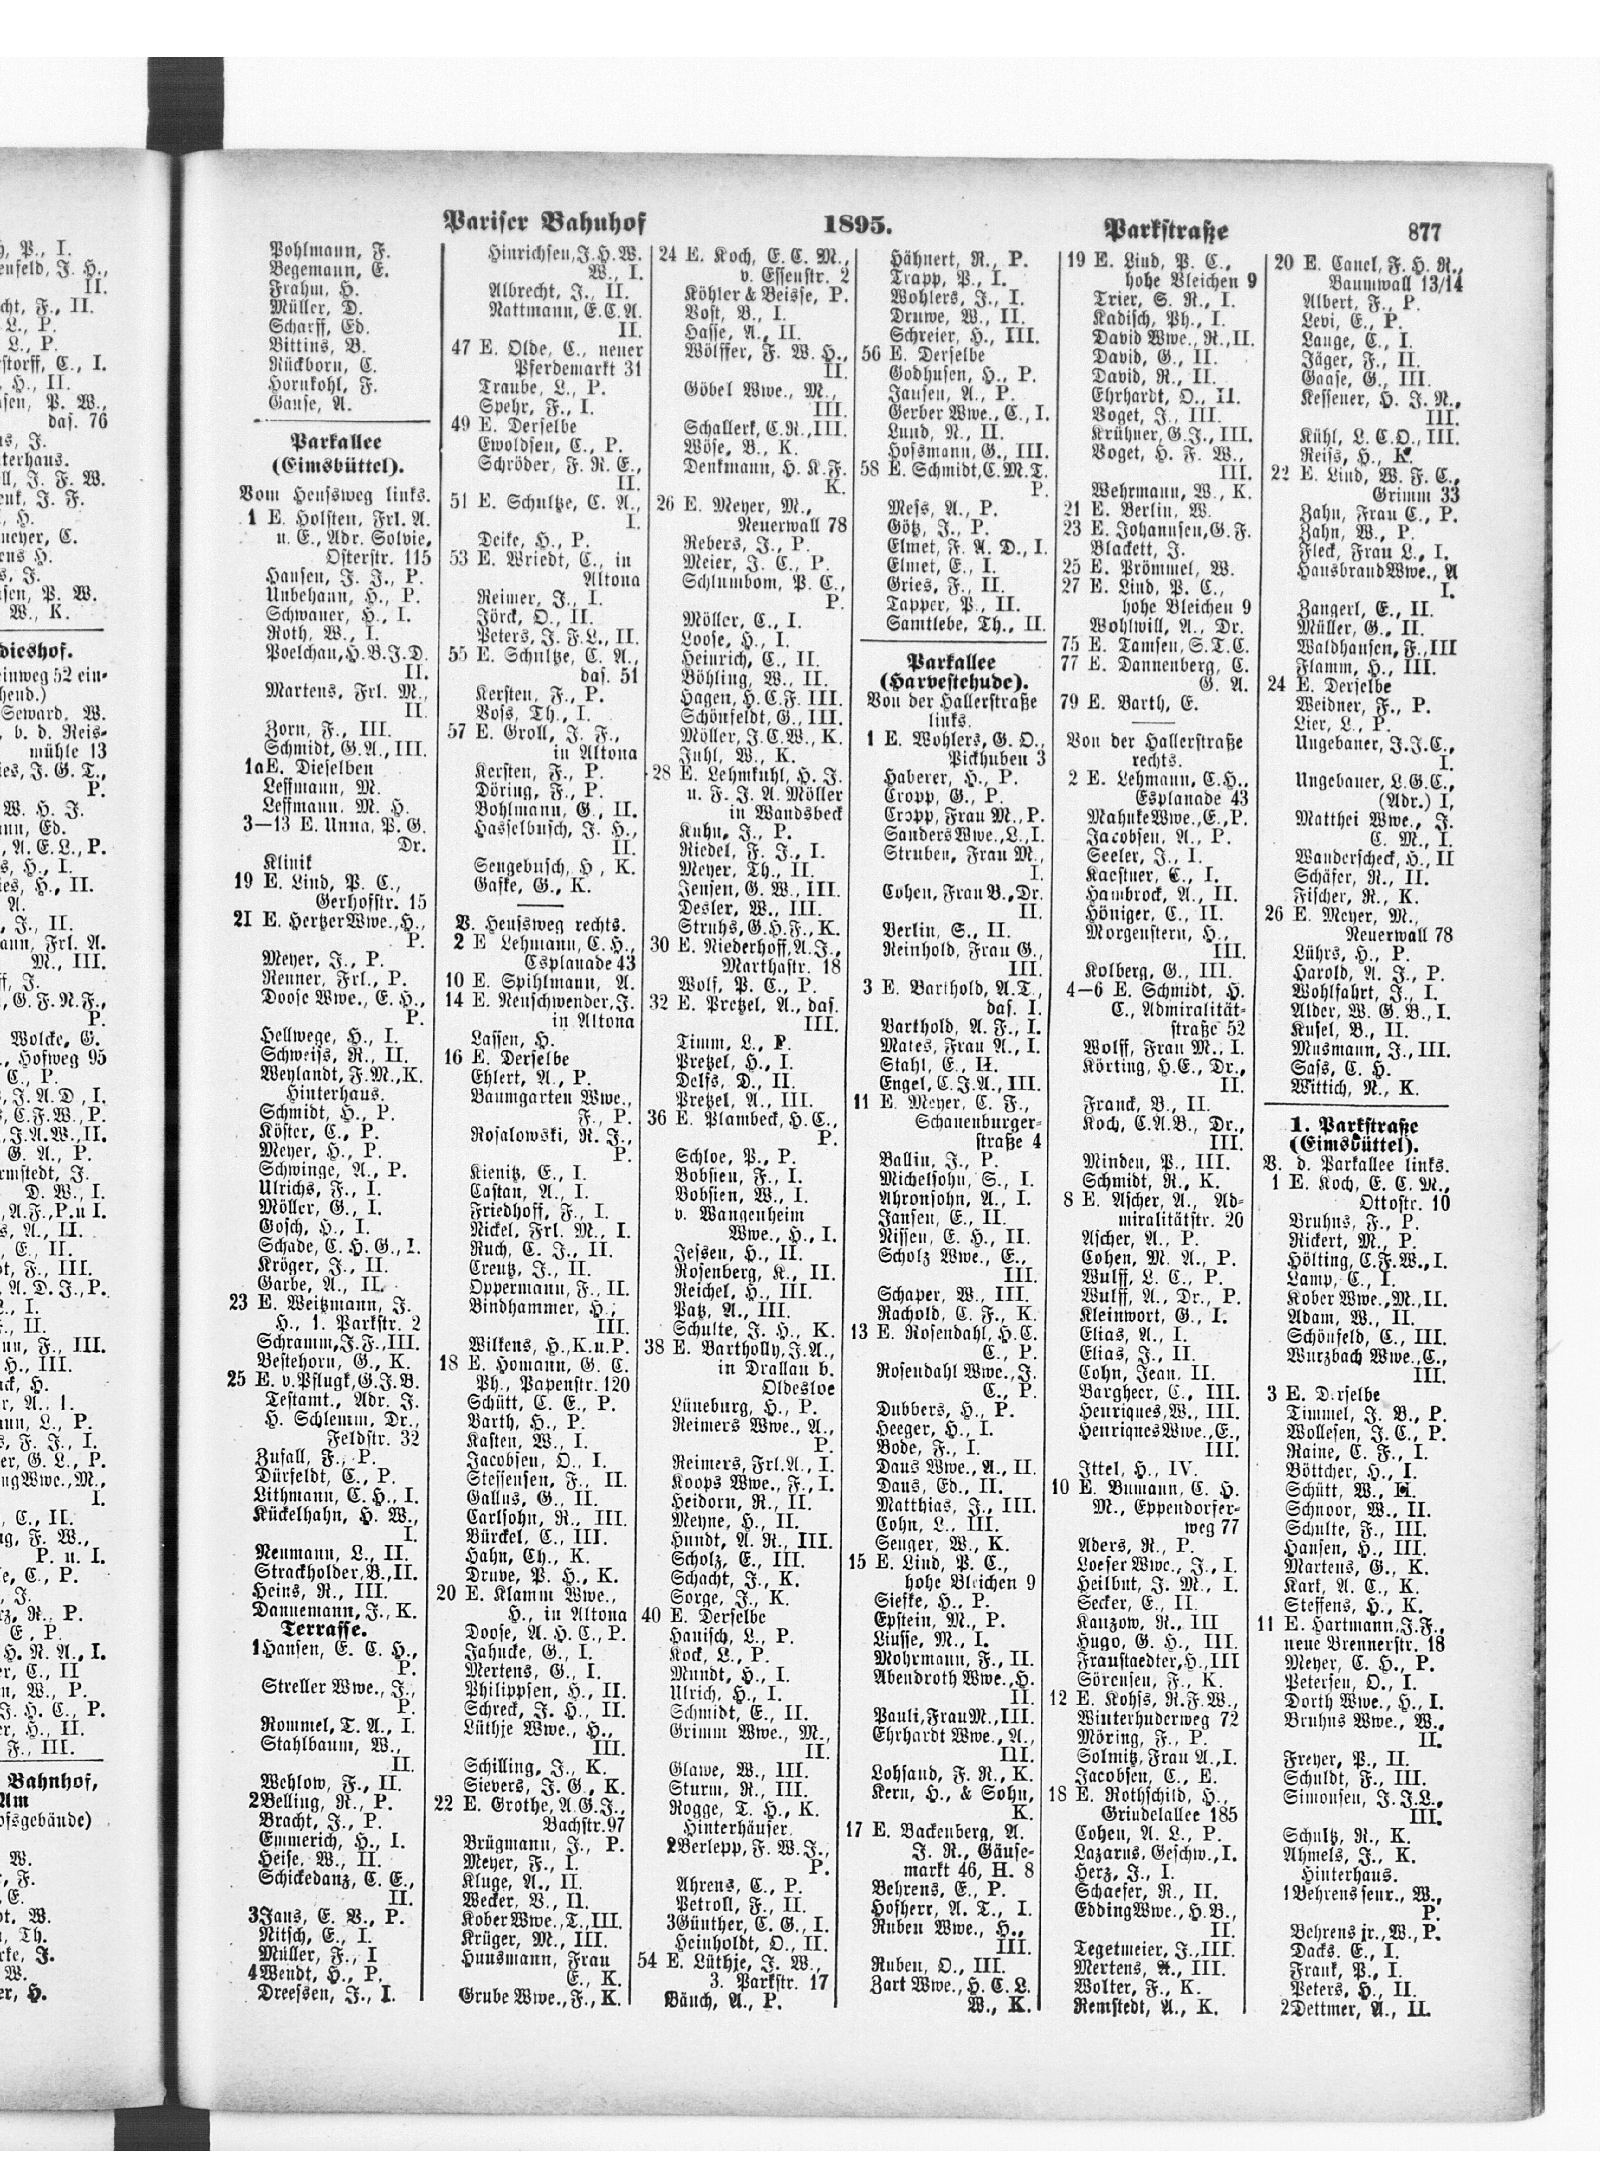 Pariser Bahnhof
1895.
Parkstraße
877
Pohlmann, F.
Begemann, E.
Frahm, H.
Müller, D.
Scharff, Ed.
Bittins, B.
Rückborn, C.
Hornkohl, F.
Ganse, A.
Parkallee
(Eimsbüttel).
Vom Heussweg links.
1 E. Holsten, Frl. A.
u. E., Adr. Solvie,
Osterstr. 115
Hansen, J. J., P.
Unbehann, H., P.
Schwaner, H., I.
Roth, W., I.
Poelchau, H. B. J. D.
II.
Martens, Frl. M.,
II.
Zorn, F., III.
Schmidt, G. A., III.
1a E. Dieselben
Leffmann, M.
Leffmann, M. H.
3—13 E. Unna, P. G.
Dr.
Klinik
19 E. Lind, P. C.,
Gerhofstr. 15
21 E. Hertzer Wwe., H.,
P.
Meyer, J., P.
Renner, Frl., P.
Doose Wwe., E. H.,
P.
Hellwege, H., I.
Schweiss, R., II.
Weylandt, F. M., K.
Hinterhaus.
Schmidt, H., P.
Köster, C., P.
Meyer, H., P.
Schwinge, A., P.
Ulrichs, F., I.
Möller, G., I.
Gosch, H., I.
Schade, C. H. G., I.
Kröger, J., II.
Garbe, A., II.
23 E. Weitzmann, J.
H., 1. Parkstr. 2
Schramm, J. F., III.
Bestehorn, G., K.
25 E. v. Pflugk, G. J. B.
Testamt., Adr. J.
H. Schlemm, Dr.,
Feldstr. 32
Zufall, F., P.
Dürfeldt, C., P.
Lithmann, C. H., I.
Kückelhahn, H. W.,
I.
Neumann, L., II.
Strackholder, B., II.
Heins, R., III.
Dannemann, J., K.
Terrasse.
1 Hansen, E. C. H.,
P.
Streller Wwe., J.,
P.
Rommel, T. A., I.
Stahlbaum, W.,
II.
Wehlow, F., II.
2 Belling, R., P.
Bracht, J., P.
Emmerich, H., I.
Heise, W., II.
Schickedanz, C. E.,
II.
3 Jans, E. B., P.
Nitsch, E., I.
Müller, F., I
4 Wendt, H., P.
Dreessen, J., I.
Hinrichsen, J. H. W.
W., I.
Albrecht, J., II.
Nattmann, E. C. A.
II.
47 E. Olde, C., neuer
Pferdemarkt 31
Traube, L., P.
Spehr, F., I.
49 E. Derselbe
Ewoldsen, C., P.
Schröder, F. R. E.,
II.
51 E. Schultze, C. A.,
I.
Deike, H., P.
53 E. Wriedt, C., in
Altona
Reimer, J., I.
Jörck, O., II.
Peters, J. F. L., II.
55 E. Schultze, C. A.,
das. 51
Kersten, F., P.
Voss, Th., I.
57 E. Groll, J. F.,
in Altona
Kersten, F., P.
Döring, F., P.
Bohlmann, G., II.
Hasselbusch, J. H.,
II.
Sengebusch, H., K.
Gaske, G., K.
V. Heussweg rechts.
2 E Lehmann, C. H.,
Esplanade 43
10 E. Spihlmann, A.
14 E. Neuschwender, J.
in Altona
Lassen, H.
16 E. Derselbe
Ehlert, A., P.
Baumgarten Wwe.,
F., P.
Rosalowski, R. J.,
P.
Kienitz, E., I.
Castan, A., I.
Friedhoff, F., I.
Nickel, Frl. M., I.
Ruch, C. J., II.
Creutz, J., II.
Oppermann, F., II.
Bindhammer, H.,
III.
Wilkens, H., K. u. P.
18 E. Homann, G. C.
Ph., Papenstr. 120
Schütt, C. E., P.
Barth, H., P.
Kasten, W., I.
Jacobsen, O., I.
Steffensen, F., II.
Gallus, G., II.
Carlsohn, R., III.
Bürckel, C., III.
Hahn, Ch., K.
Druve, P. H., K.
20 E. Klamm Wwe.,
H., in Altona
Doose, A. H. C., P.
Jahncke, G., I.
Mertens, G., I.
Philippsen, H., II.
Schreck, J. H., II.
Lüthje Wwe., H.,
III.
Schilling, J., K.
Sievers, J. G., K.
22 E. Grothe, A. G. J.,
Bachstr. 97
Brügmann, J., P.
Meyer, F., I.
Kluge, A., II.
Wecker, V., II.
Kober Wwe., T., III.
Krüger, M., III.
Huusmann, Frau
E., K.
Grube Wwe., F., K.
24 E. Koch, E. C. M.,
v. Essenstr. 2
Köhler & Beisse, P.
Vost, B., I.
Hasse, A., II.
Wölffer, F. W. H.,
II.
Göbel Wwe., M.,
III.
Schallerk, C. R., III.
Wöse, B., K.
Denkmann, H. K. F.
K.
26 E. Meyer, M.,
Neuerwall 78
Rebers, J., P.
Meier, J. C., P.
Schlumbom, P. C.,
P.
Möller, C., I.
Loose, H., I.
Heinrich, C., II.
Böhling, W., II.
Hagen, H. C. F. III.
Schönfeldt, G., III.
Möller, J. C. W., K.
Juhl, W., K.
28 E. Lehmkuhl, H. J.
u. F. J. A. Möller
in Wandsbeck
Kuhn, J., P.
Riedel, F. J., I.
Meyer, Th., II.
Jensen, G. W., III.
Desler, W., III.
Struhs, G. H. F., K.
30 E. Niederhoff, A. J.,
Marthastr. 18
Wolf, P. C., P.
32 E. Pretzel, A., das.
III.
Timm, L., P.
Pretzel, H., I.
Delfs, D., II.
Pretzel, A., III.
36 E. Plambeck, H. C.,
P.
Schloe, P., P.
Bobsien, F., I.
Bobsien, W., I.
v. Wangenheim
Wwe., H., I.
Jessen, H., II.
Rosenberg, K., II.
Reichel, H., III.
Patz, A., III.
Schulte, J. H., K.
38 E. Bartholly, J. A.,
in Drallau b.
Oldesloe
Lüneburg, H., P.
Reimers Wwe., A.,
P.
Reimers, Frl. A., I.
Koops Wwe., F., I.
Heidorn, R., II.
Meyne, H., II.
Hundt, A. R., III.
Scholz, E., III.
Schacht, J., K.
Sorge, J., K.
40 E. Derselbe
Hanisch, L., P.
Kock, L., P.
Mundt, H., I.
Ulrich, H., I.
Schmidt, E., II.
Grimm Wwe., M.,
II.
Glawe, W., III.
Sturm, R., III.
Rogge, T. H., K.
Hinterhäuser.
2 Berlepp, F. W. J.,
P.
Ahrens, C., P.
Petroll, F., II.
3 Günther, C. G., I.
Heinholdt, O., II.
54 E. Lüthje, J. W.,
3. Parkstr. 17
Bäuch, A., P.
Hähnert, R., P.
Trapp, P., I.
Wohlers, J., I.
Druwe, W., II.
Schreier, H., III.
56 E. Derselbe
Godhusen, H., P.
Jansen, A., P.
Gerber Wwe., C., I.
Lund, N., II.
Hossmann, G., III.
58 E. Schmidt, C. M. T.
P.
Mess, A., P.
Götz, J., P.
Elmet, F. A. D., I.
Elmet, E., I.
Gries, F., II.
Tapper, P., II.
Samtlebe, Th., II.
Parkallee
(Harvestehude).
Von der Hallerstraße
links.
1 E. Wohlers, G. O.,
Pickhuben 3
Haberer, H., P.
Cropp, G., P.
Cropp, Frau M., P.
Sanders Wwe., L., I.
Struben, Frau M.,
I.
Cohen, Frau B., Dr.
II.
Berlin, S., II.
Reinhold, Frau G.,
III.
3 E. Barthold, A. T.,
das. I.
Barthold, A. F., I.
Mates, Frau A., I.
Stahl, E., II.
Engel, C. J. A., III.
11 E. Meyer, C. F.,
Schauenburger-
straße 4
Ballin, J., P.
Michelsohn, S., I.
Ahronsohn, A., I.
Jansen, E., II.
Nissen, E. H., II.
Scholz Wwe., E.,
III.
Schaper, W., III.
Rachold, C. F., K.
13 E. Rosendahl, H. C.
C., P.
Rosendahl Wwe., J.
C., P.
Dubbers, H., P.
Heeger, H., I.
Bode, F., I.
Daus Wwe., A., II.
Daus, Ed., II.
Matthias, J., III.
Cohn, L., III.
Senger, W., K.
15 E. Lind, P. C.,
hohe Bleichen 9
Siefke, H., P.
Epstein, M., P.
Liusse, M., I.
Mohrmann, F., II.
Abendroth Wwe., H.
II.
Pauli, Frau M., III.
Ehrhardt Wwe., A.,
III.
Lohsand, F. R., K.
Kern, H., & Sohn,
K.
17 E. Backenberg, A.
J. R., Gänse-
markt 46, H. 8
Behrens, E., P.
Hofherr, A. T., I.
Ruben Wwe., H.,
III.
Ruben, O., III.
Zart Wwe., H. C. L.
W., K.
19 E. Lind, P. C.,
hohe Bleichen 9
Trier, S. R., I.
Kadisch, Ph., I.
David Wwe., R., II.
David, G., II.
David, R., II.
Ehrhardt, O., II.
Voget, J., III.
Krühner, G. J., III.
Voget, H. F. W.,
III.
Wehrmann, W., K.
21 E. Berlin, W.
23 E. Johannsen, G. F.
Blackett, J.
25 E. Prömmel, W.
27 E. Lind, P. C.,
hohe Bleichen 9
Wohlwill, A., Dr.
75 E. Tamsen, S. T. C.
77 E. Dannenberg, C.
G. A.
79 E. Barth, E.
Von der Hallerstraße
rechts.
2 E. Lehmann, C. H.,
Esplanade 43
Mahnke Wwe., E., P.
Jacobsen, A., P.
Seeler, J., I.
Kaestner, C., I.
Hambrock, A., II.
Höniger, C., II.
Morgenstern, H.,
III.
Kolberg, G., III.
4—6 E. Schmidt, H.
C., Admiralität-
straße 52
Wolff, Frau M., I.
Körting, H. E., Dr.,
II.
Franck, B., II.
Koch, C. A. B., Dr.,
III.
Minden, P., III.
Schmidt, R., K.
8 E. Ascher, A., Ad-
miralitätstr. 20
Ascher, A., P.
Cohen, M. A., P.
Wulff, L. C., P.
Wulff, A., Dr., P.
Kleinwort, G., I.
Elias, A., I.
Elias, J., II.
Cohn, Jean. II.
Bargheer, C., III.
Henriques, W., III.
Henriques Wwe., E.,
III.
Ittel, H., IV.
10 E. Bumann, C. H.
M., Eppendorfer-
weg 77
Aders, R., P.
Loefer Wwe., J., I.
Heilbut, J. M., I.
Secker, E., II.
Kanzow, R., III
Hugo, G. H., III.
Fraustaedter, H., III
Sörensen, F., K.
12 E. Kohss, R. F. W.,
Winterhuderweg 72
Möring, F., P.
Solmitz, Frau A., I.
Jacobsen, C., E.
18 E. Rothschild, H.,
Grindelallee 185
Cohen, A. L., P.
Lazarus, Geschw., I.
Herz, J., I.
Schaefer, R., II.
Edding Wwe., H. B.,
II.
Tegetmeier, J., III.
Mertens, A., III.
Wolter, F., K.
Remstedt, A., K.
20 E. Canel, F. H. R.,
Baumwall 13/14
Albert, F., P.
Levi, E., P.
Lange, C., I.
Jäger, F., II.
Gaase, G., III.
Kessener, H. J. N.,
III.
Kühl, L. C. O., III.
Reiss, H., K.
22 E. Lind, W. F. C.,
Grimm 33
Zahn, Frau C., P.
Zahn, W., P.
Fleck, Frau L., I.
Hausbrand Wwe., A
I.
Zangerl, E., II.
Müller, G., II.
Waldhausen, F., III
Flamm, H., III.
24 E. Derselbe
Weidner, F., P.
Lier, L., P.
Ungebauer, J. J. C.,
I.
Ungebauer, L. G. C.,
(Adr.) I,
Matthei Wwe., J.
C. M., I.
Wanderscheck, H., II
Schäfer, R., II.
Fischer, R., K.
26 E. Meyer, M.,
Neuerwall 78
Lührs, H., P.
Harold, A. J., P.
Wohlfahrt, J., I.
Alder, W. G. B., I.
Kusel, B., II.
Musmann, J., III.
Sass, C. H.
Wittich, N., K.
1. Parkstraße
(Eimsbüttel).
V. d. Parkallee links.
1 E. Koch, E. C. M.,
Ottostr. 10
Bruhns, F., P.
Rickert, M., P.
Hölting, C. F. W., I.
Lamp, C., I.
Kober Wwe., M., II.
Adam, W., II.
Schönfeld, C., III.
Wurzbach Wwe., C.,
III.
3 E. Derselbe
Timmel, J. B., P.
Wollesen, J. C., P.
Raine, C. F., I.
Böttcher, H., I.
Schütt, W., II.
Schnoor, W., II.
Schulte, F., III.
Hansen, H., III.
Martens, G., K.
Kark, A. C., K.
Steffens, H., K.
11 E. Hartmann, J. F.,
neue Brennerstr. 18
Meyer, C. H., P.
Petersen, O., I.
Dorth Wwe., H., I.
Bruhns Wwe., W.,
II.
Freyer, P., II.
Schuldt, F., III.
Simonsen, J. J. L.,
III.
Schultz, R., K.
Ahmels, J., K.
Hinterhaus.
1 Behrens senr., W.,
P.
Behrens jr., W., P.
Dacks. E., I.
Frank, P., I.
Peters, H., II.
2 Dettmer, A., II.